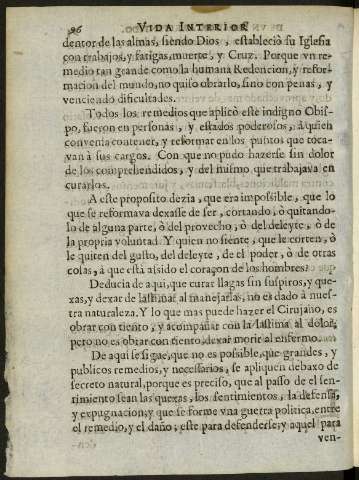 96 VIDA INTERIOR
dentor de las almas, siendo Dios, estableciò su Iglesia
con trabajos, y fatigas, muerte, y Cruz. Porque vn re-
medio tan grande como la humana Redencion, y refor-
macion del mundo, no quiso obrarlo, sino con penas, y
venciendo dificultades.
Todos los remedios que aplicò este indigno Obis-
po, fueron en personas, y estados poderosos, à quien
convenia contener, y reformar en los puntos que toca-
van à sus cargos. Con que no pudo hazerse sin dolor
de los comprehendidos, y del mismo que trabajava en
curarlos.
A este proposito dezia, que era impossible, que lo
que se reformava dexasse de ser, cortando, ò quitando-
lo de alguna parte, ò del provecho, ò del deleyte, ò de
la propria voluntad. Y quien no siente, que le corten, ò
le quiten del gusto, del deleyte, de el poder, ò de otras
cosas, à que està asido el coraçon de los hombres?
Deducia de aqui, que curar llagas sin suspiros, y que-
xas, y dexar de lastimar al manejarlas, no es dado à nues-
tra naturaleza. Y lo que mas puede hazer el Cirujano, es
obrar con tiento, y acompañar con la lastima al dolor,
pero no es obrar con tiento, dexar morir al enfermo.
De aqui se sigue, que no es possible, que grandes, y
publicos remedios, y necessarios, se apliquen debaxo de
secreto natural, porque es preciso, que al passo de el sen-
timiento sean las quexas, los sentimientos, la defensa,
y expugnacion, y que se forme vna guerra politica, entre
el remedio, y el daño; este para defenderse, y aquel para
ven-